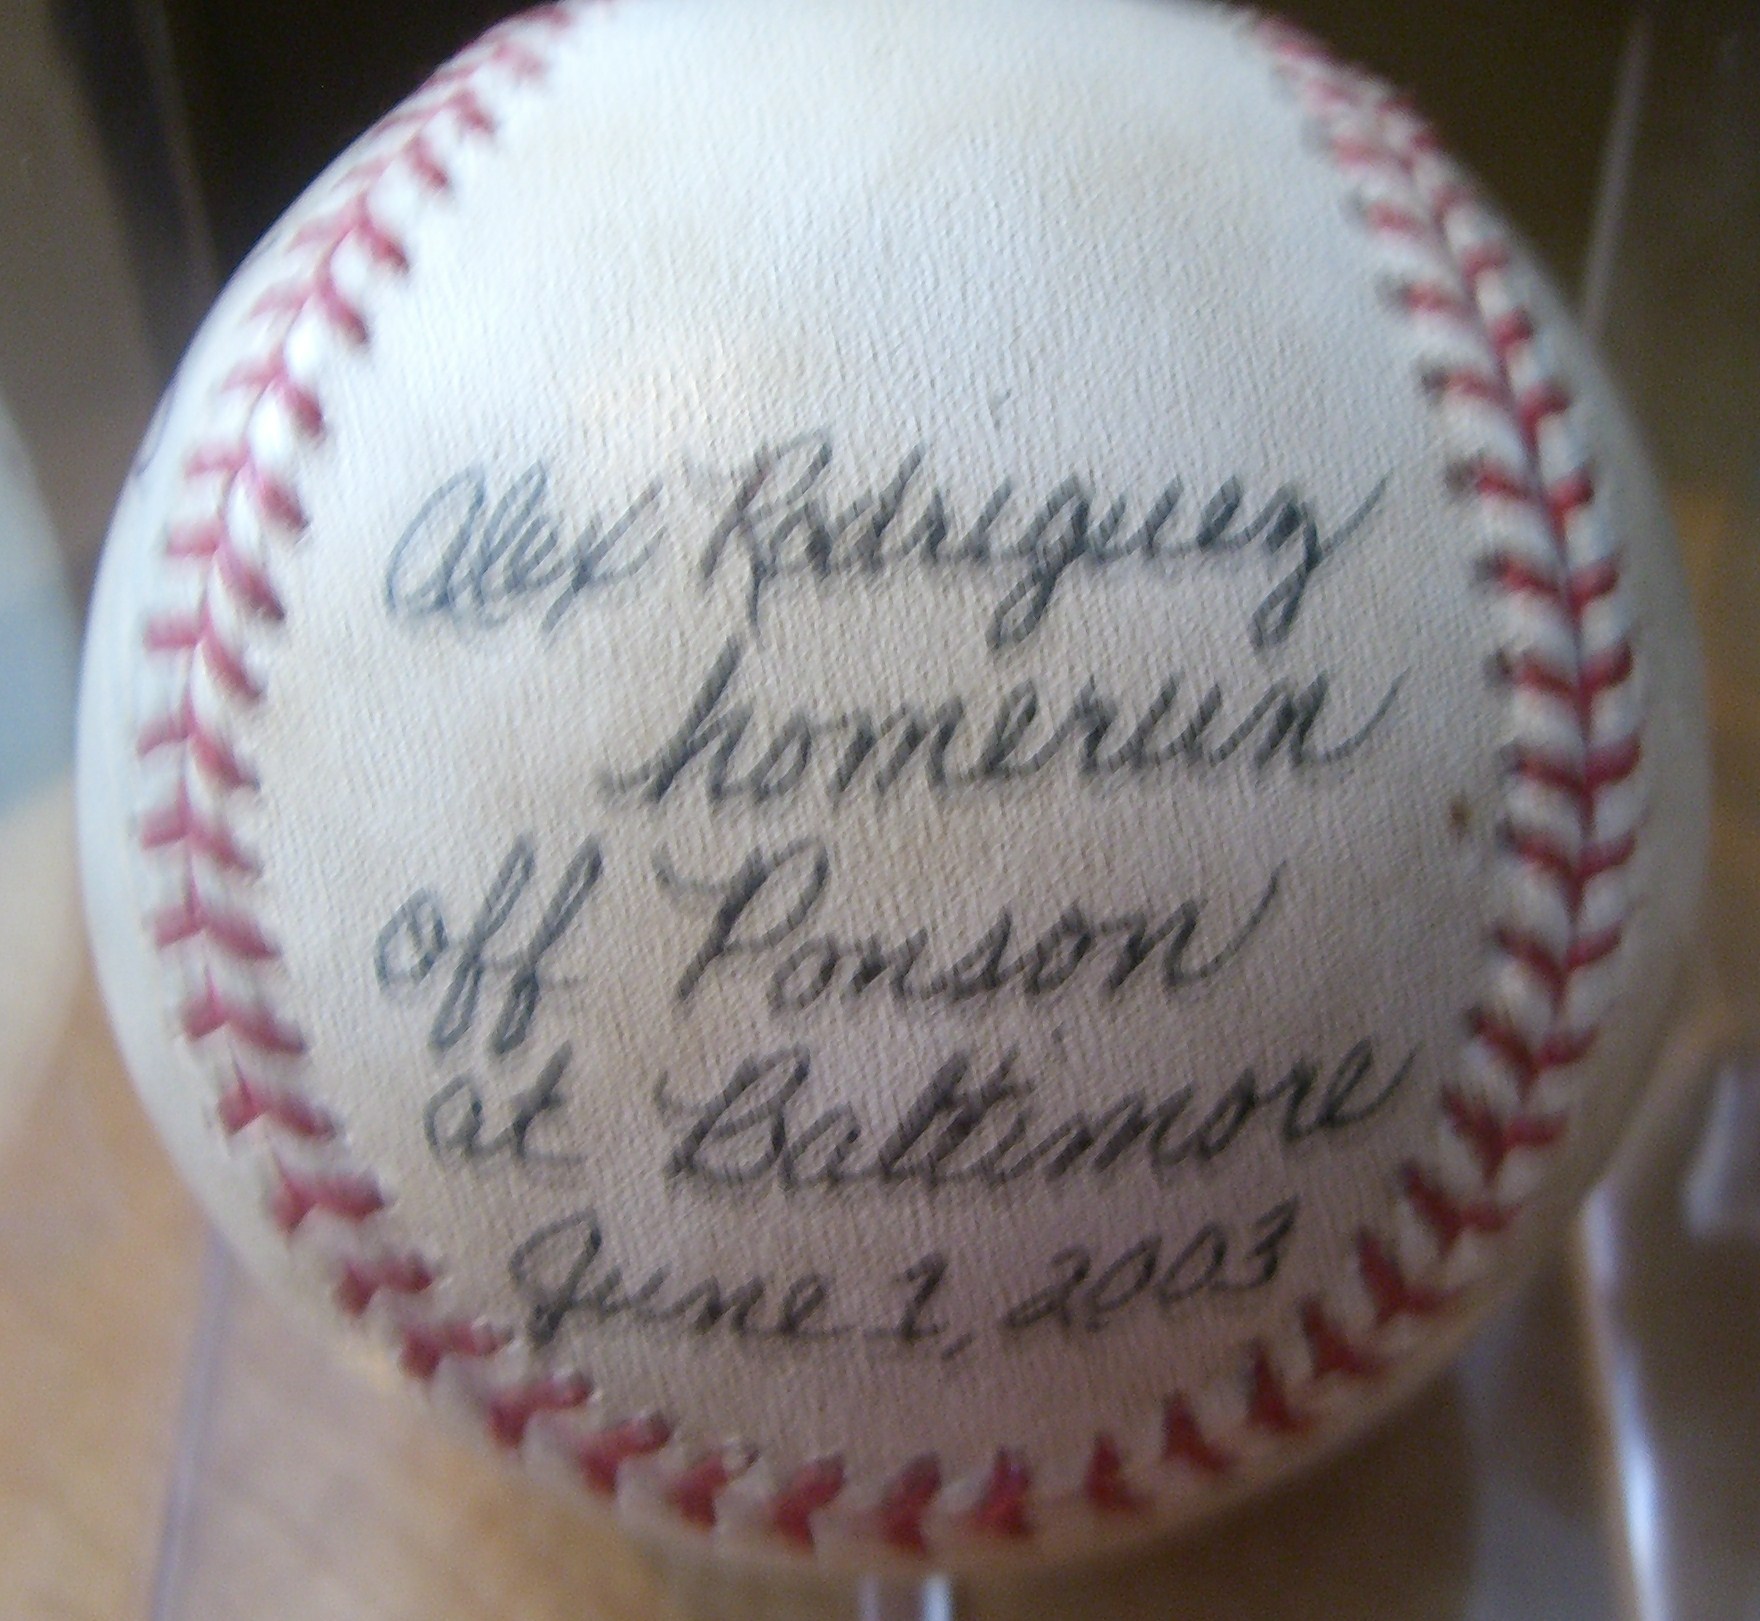 Alex Rodriguez
homerun
off Ponson
at Baltimore
June 1, 2003